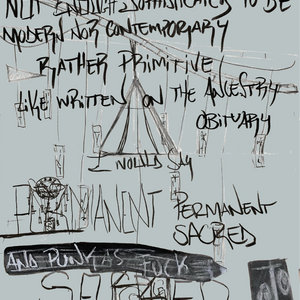 NOT ENOUGH SOPHISTICATED TO BE
MODERN NOR CONTEMPORARY
RATHER PRIMITIVE
LIKE WRITTEN ON THE ANCESTRY
OBITUARY
I WOULD SAY
PERMANENT
PERMANENT
SACRED
AND PUNK AS FUCK